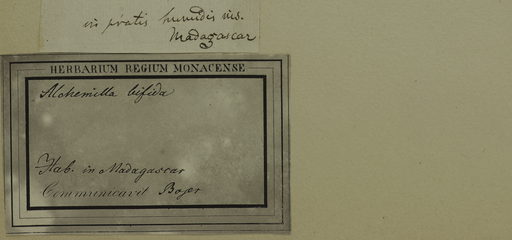 in pratis humidis ins.
Madagascar
HERBARIUM REGIUM MONACENSE
Alchemilla bifida
Hab. in Madagascar
Communicavit Bojer